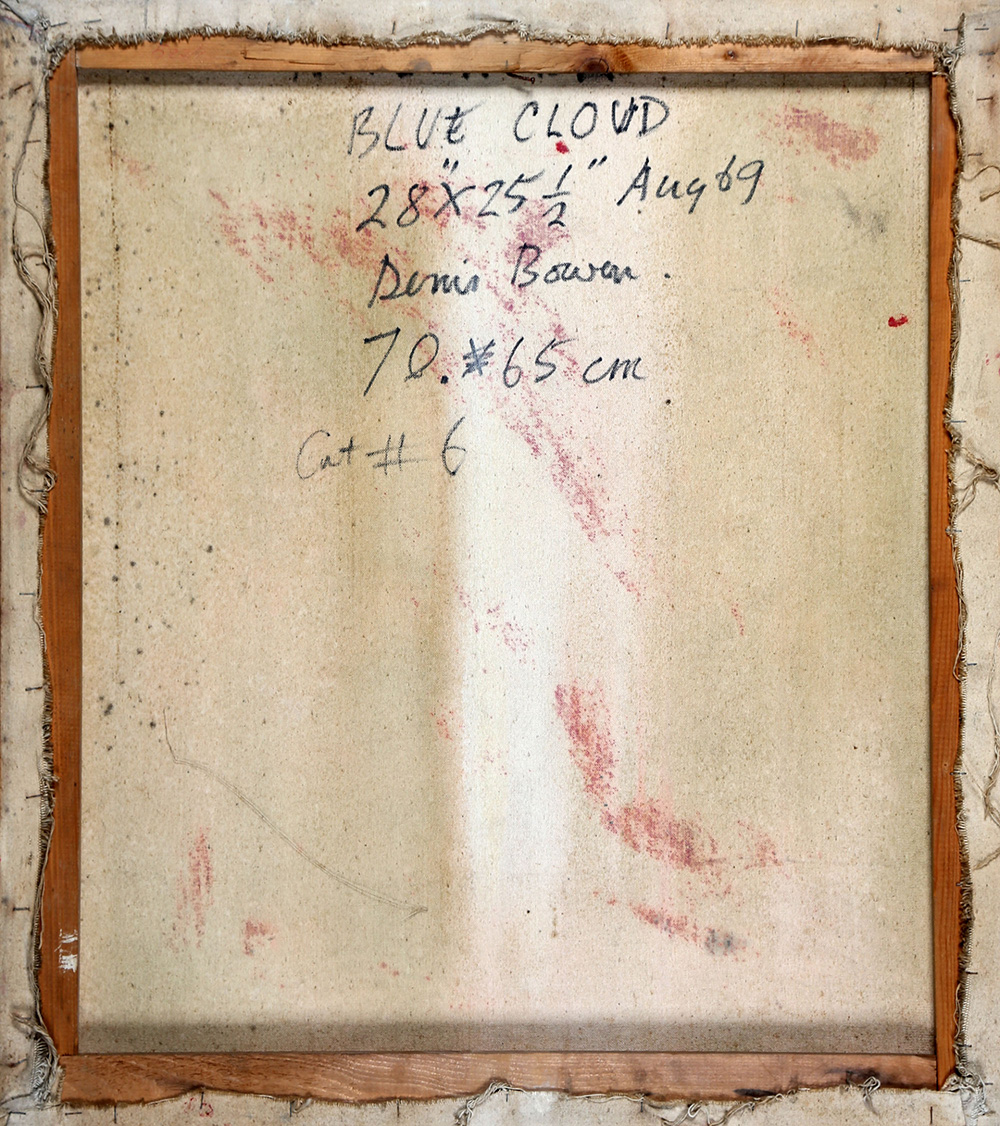 BLUE CLOUD
28"X25 1/2" Aug 69
Denis Bowen.
70.*65 cm
Cat # 6